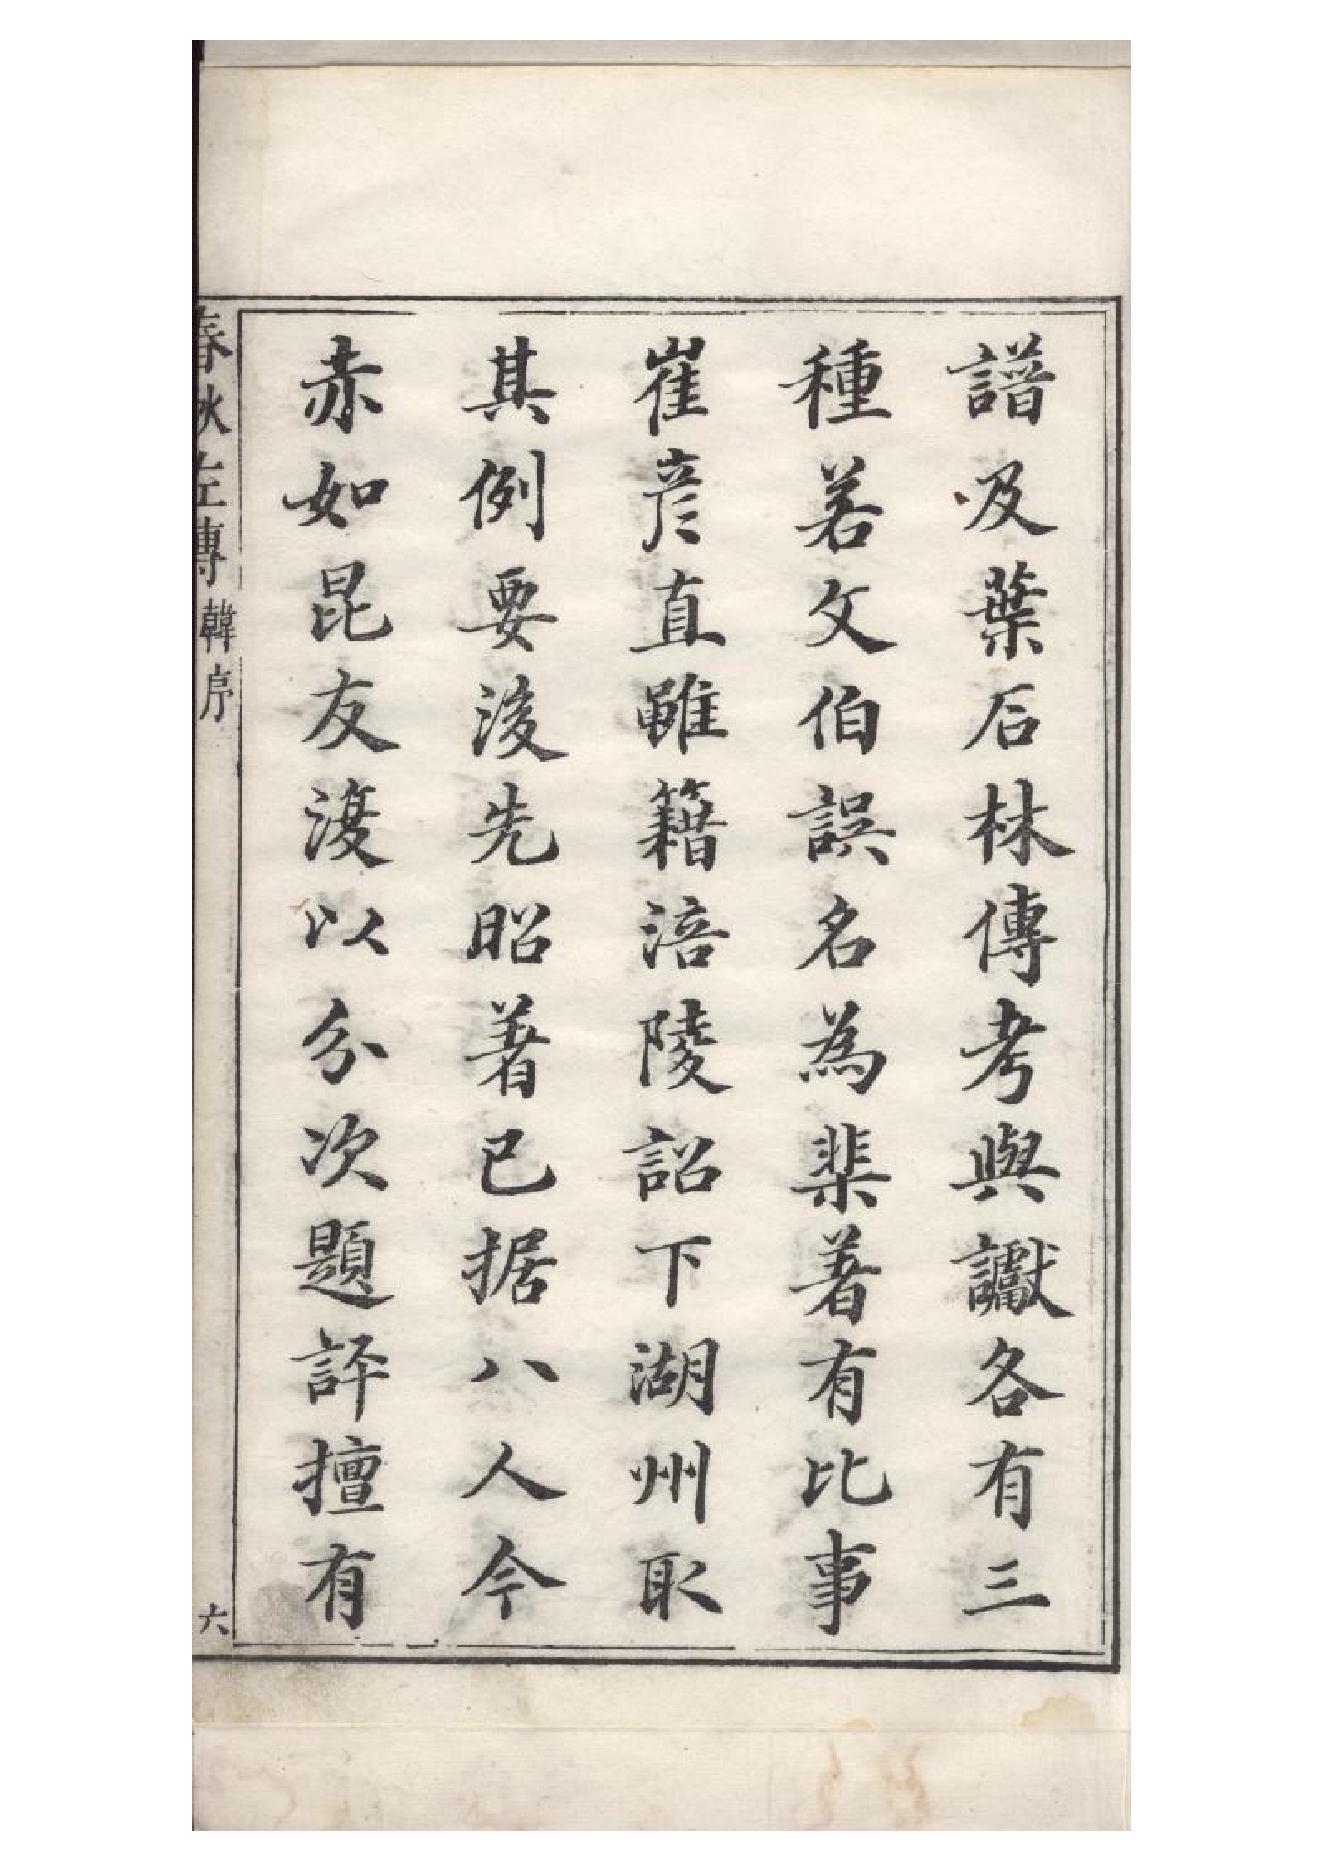 譜及葉石林傳考與讞各有三
種若文伯誤名為棐著有比事
崔彦直雖籍涪陵詔下湖州取
其例要後先昭著已据八人今
赤如昆友復以分次題評擅有
春秋左傳 韓序 六